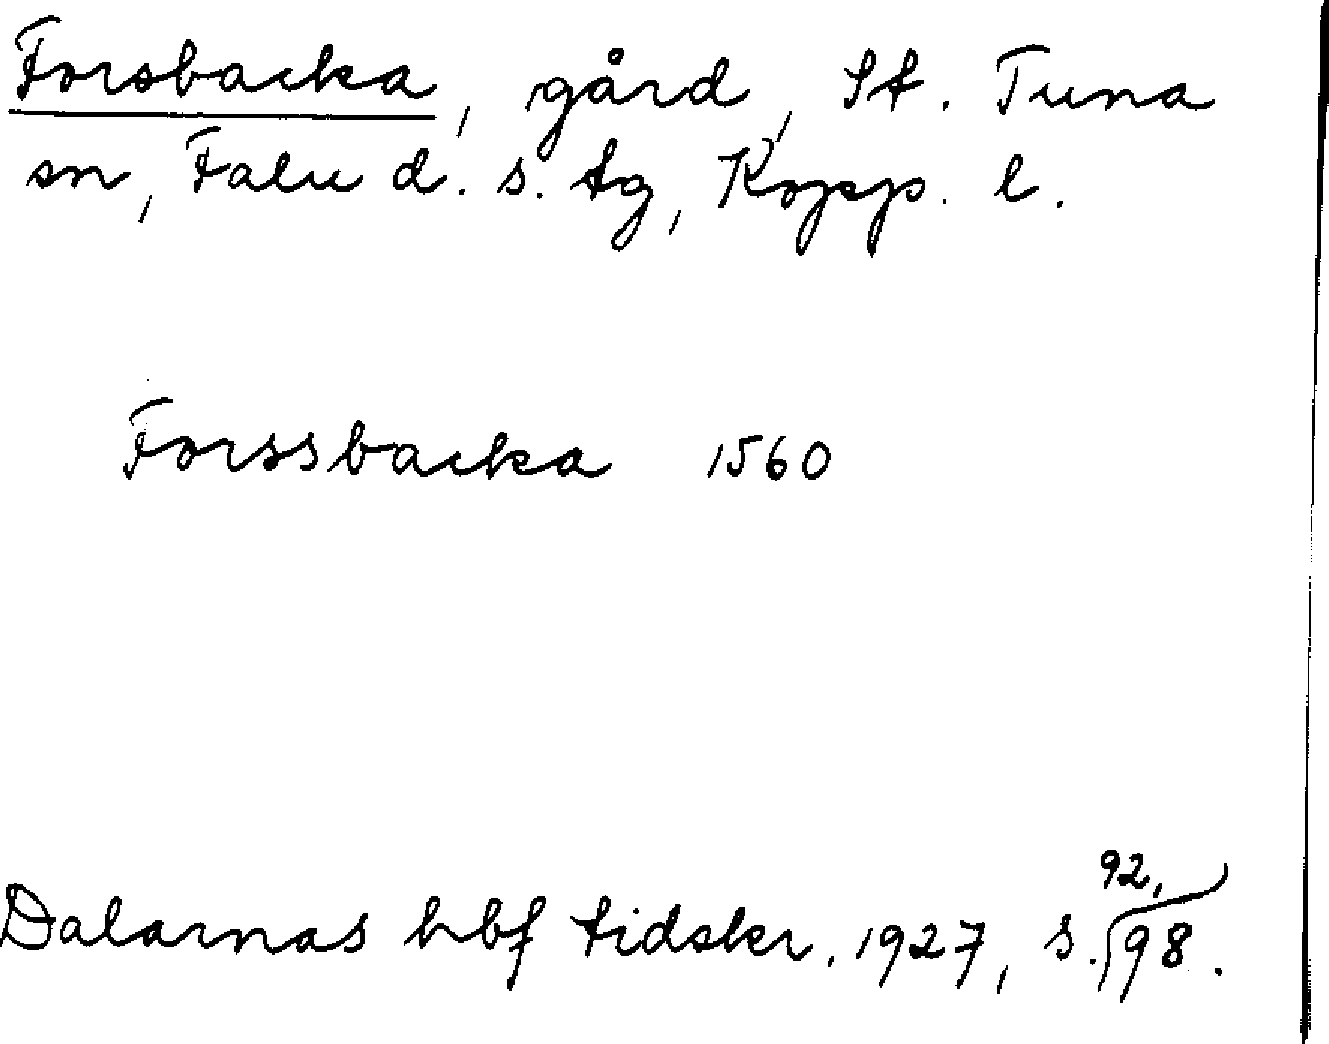 Forsbacka, gård, St. Tuna
sn, Falu d. s. tg, Kopp. l.
Forssbacka 1560
Dalarnas hbf tidskr. 1927, s. 92, 98.